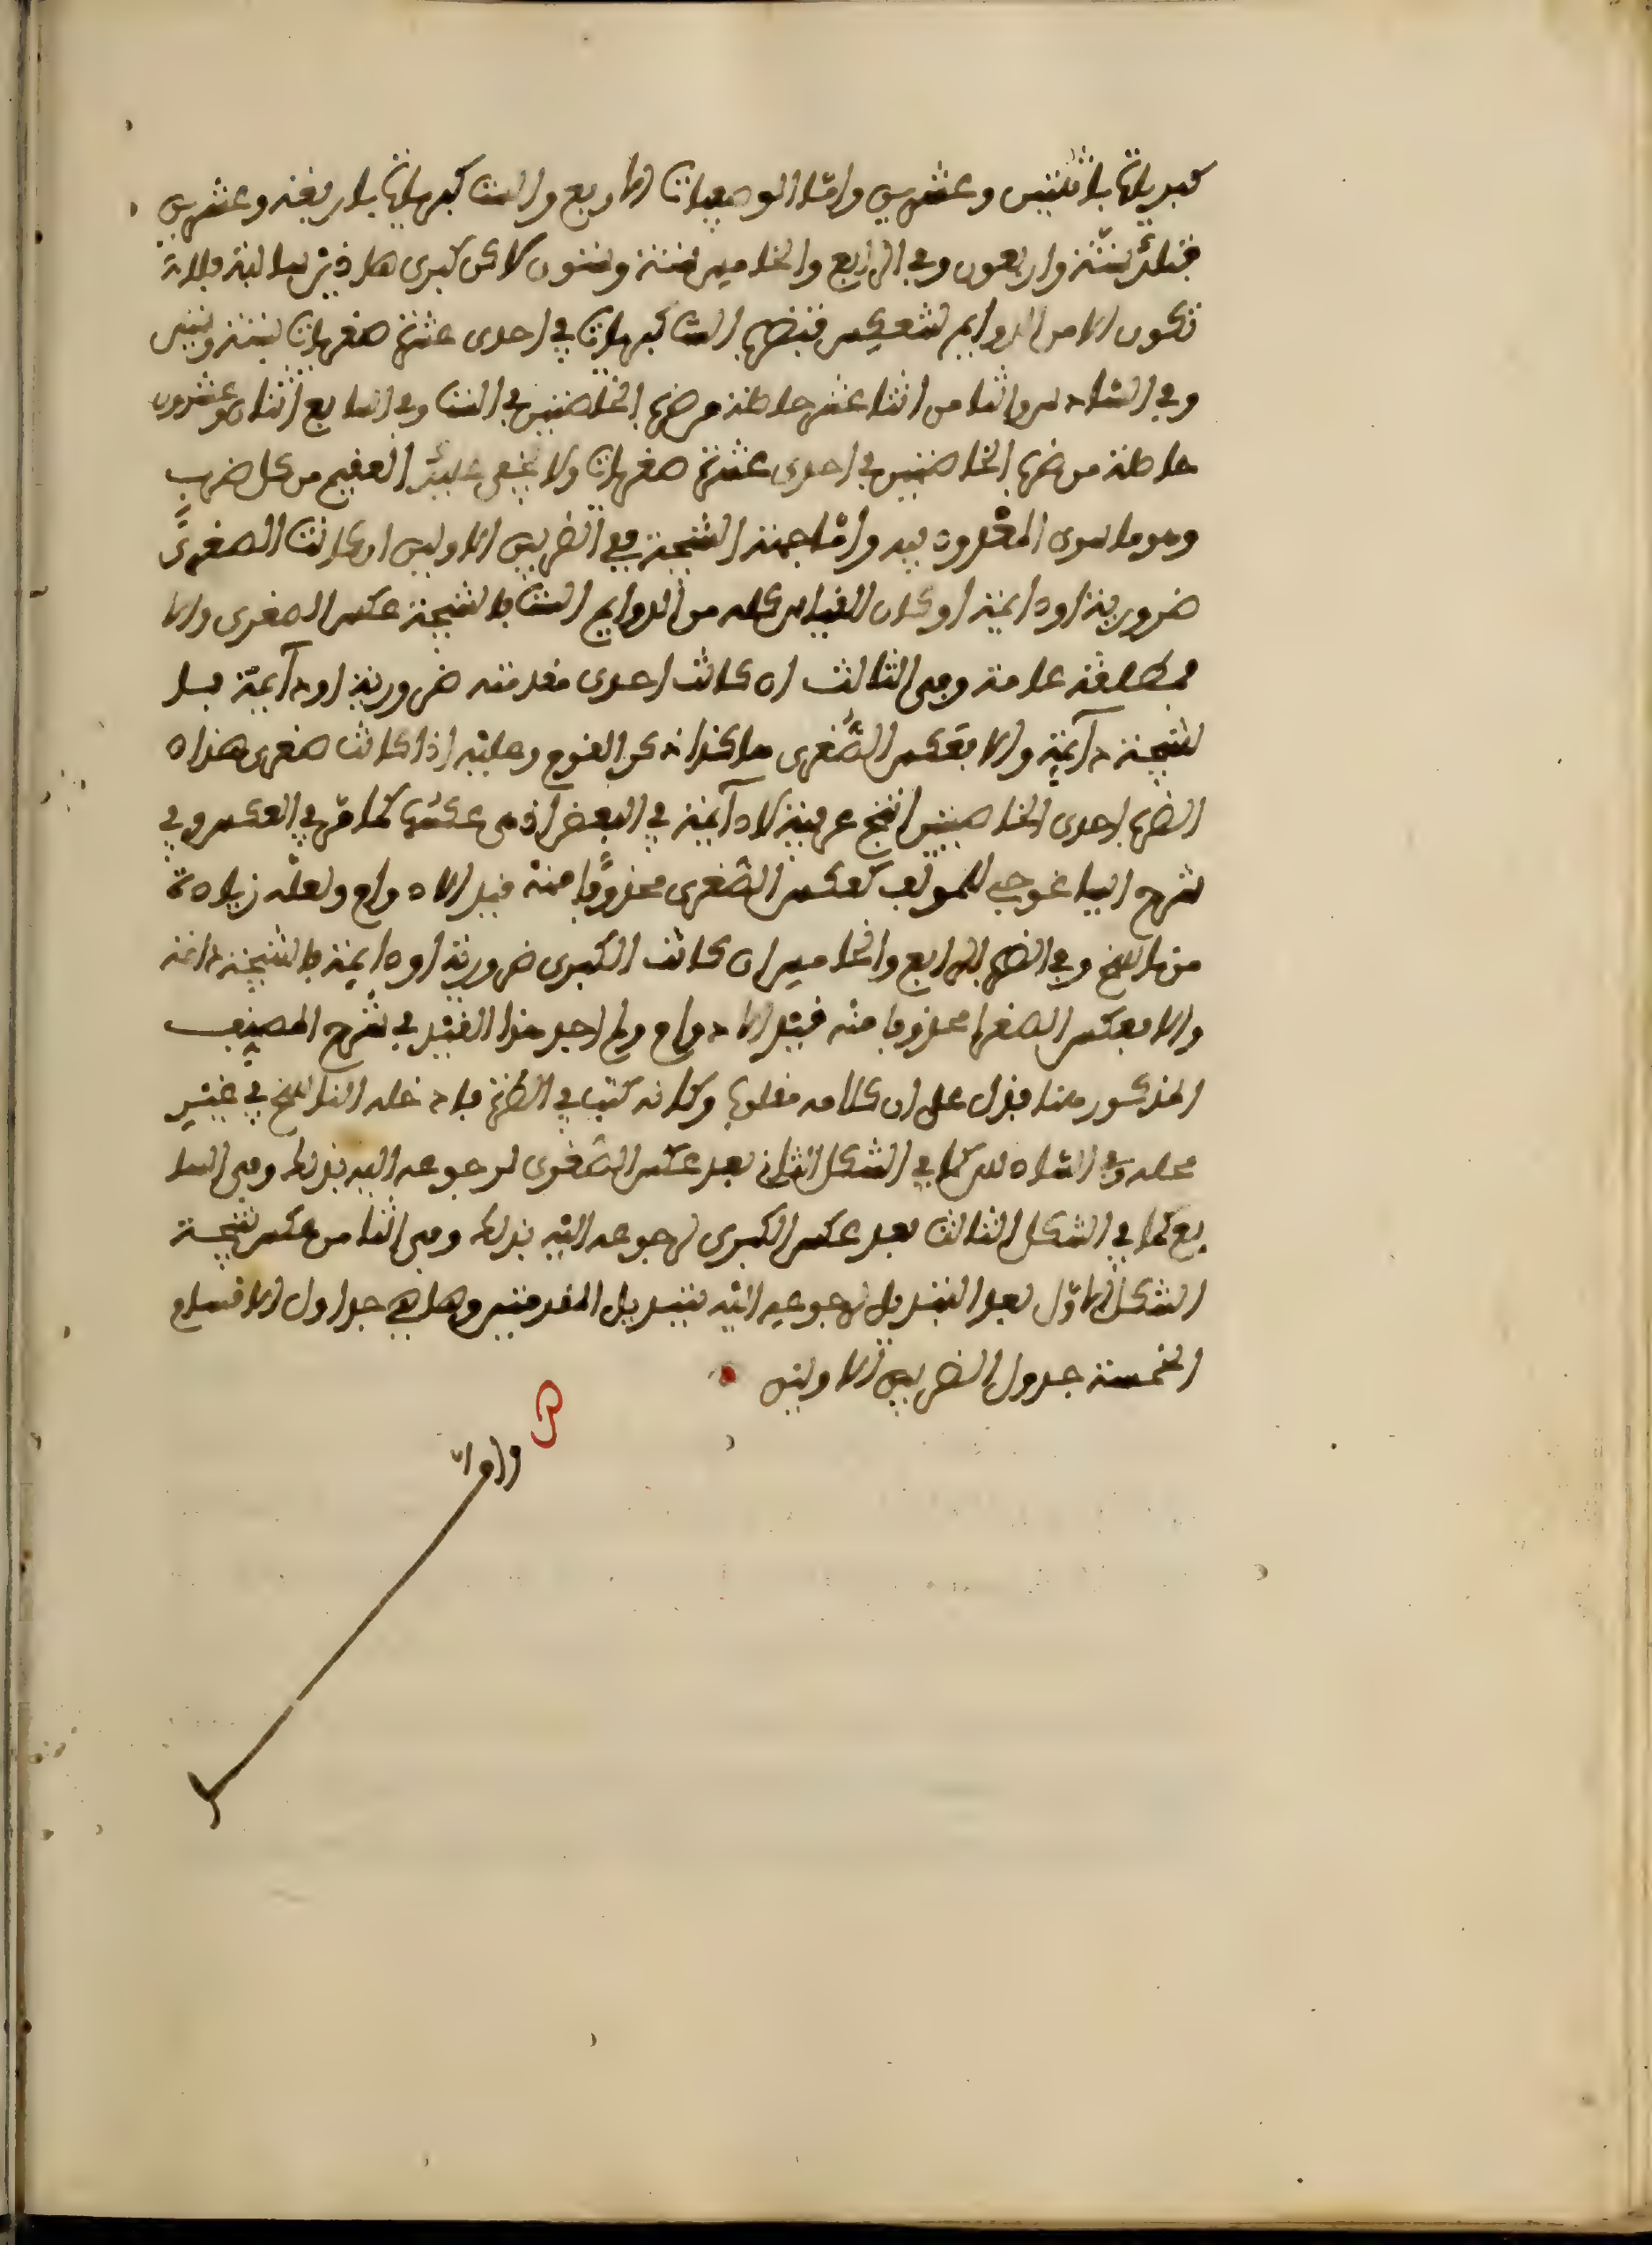 كبريات باثنتين وعشرين واما الوصفيات الاربع والست كبريات باربعة وعشرين
فتلك ستة واربعون وفي الرابع والخامس ستة وستون لان كبرى هاذين سالبة فلا
تكون الا من الدوايم لتنعكس فتضرب الست كبريات في احدى عشرة صغريات بستة وستين
وفي السادس والثامن اثنا عشر حاصلة من ضرب الخاصتين في الست وفي السابع اثنان وعشرون
حاصلة من ضرب الخاصتين في احدى عشرة صغريات ولا يخفى عليك العقيم من كل ضرب
وهو ما سوى المعدود فيه واما جهة النتيجة ففي الضربين الاولين ان كانت الصغرى
ضرورية او دائمة او كان القياس كله من الدوايم الست فالنتيجة عكس الصغرى والا
فمطلقة عامة وفي الثالث ان كانت احدى مقدمتيه ضرورية او دآئمة فا
لنتيجة دآئمة والا فعكس الصغرى هاكذا ذكر القوم وعليه اذا كانت صغرى هذا
الضرب احدى الخاصتين انتج عرفية لا دآئمة في البعض اذ هي عكسها كما مر في العكس وفي
شرح ايساغوجي للمولف كعكس الصغرى محذوفا منه قيد اللادوام ولعله زيادة
من ناسخ وفي الضرب الرابع والخامس ان كانت الكبرى ضرورية او دايمة فالنتيجة دائمة
والا فعكس الصغرى محذوفا منه قيد اللادوام ولم اجد هذا القيد في شرح المصنف
المذكور هنا فدل على ان كلامه مقلوب وكانه كتب في الطرة فادخله الناسخ في غير
محله وفي السادس كما في الشكل الثاني بعد عكس الصغرى لرجوعه اليه بذلك وفي السا
بع كما في الشكل الثالث بعد عكس الكبرى لرجوعه اليه بذلك وفي الثامن عكس نتيجة
الشكل الاول بعد التبديل لرجوعه اليه بتبديل المقدمتين وهاهي جداول الاقسام
الخمسة جدول الضربين الاولين